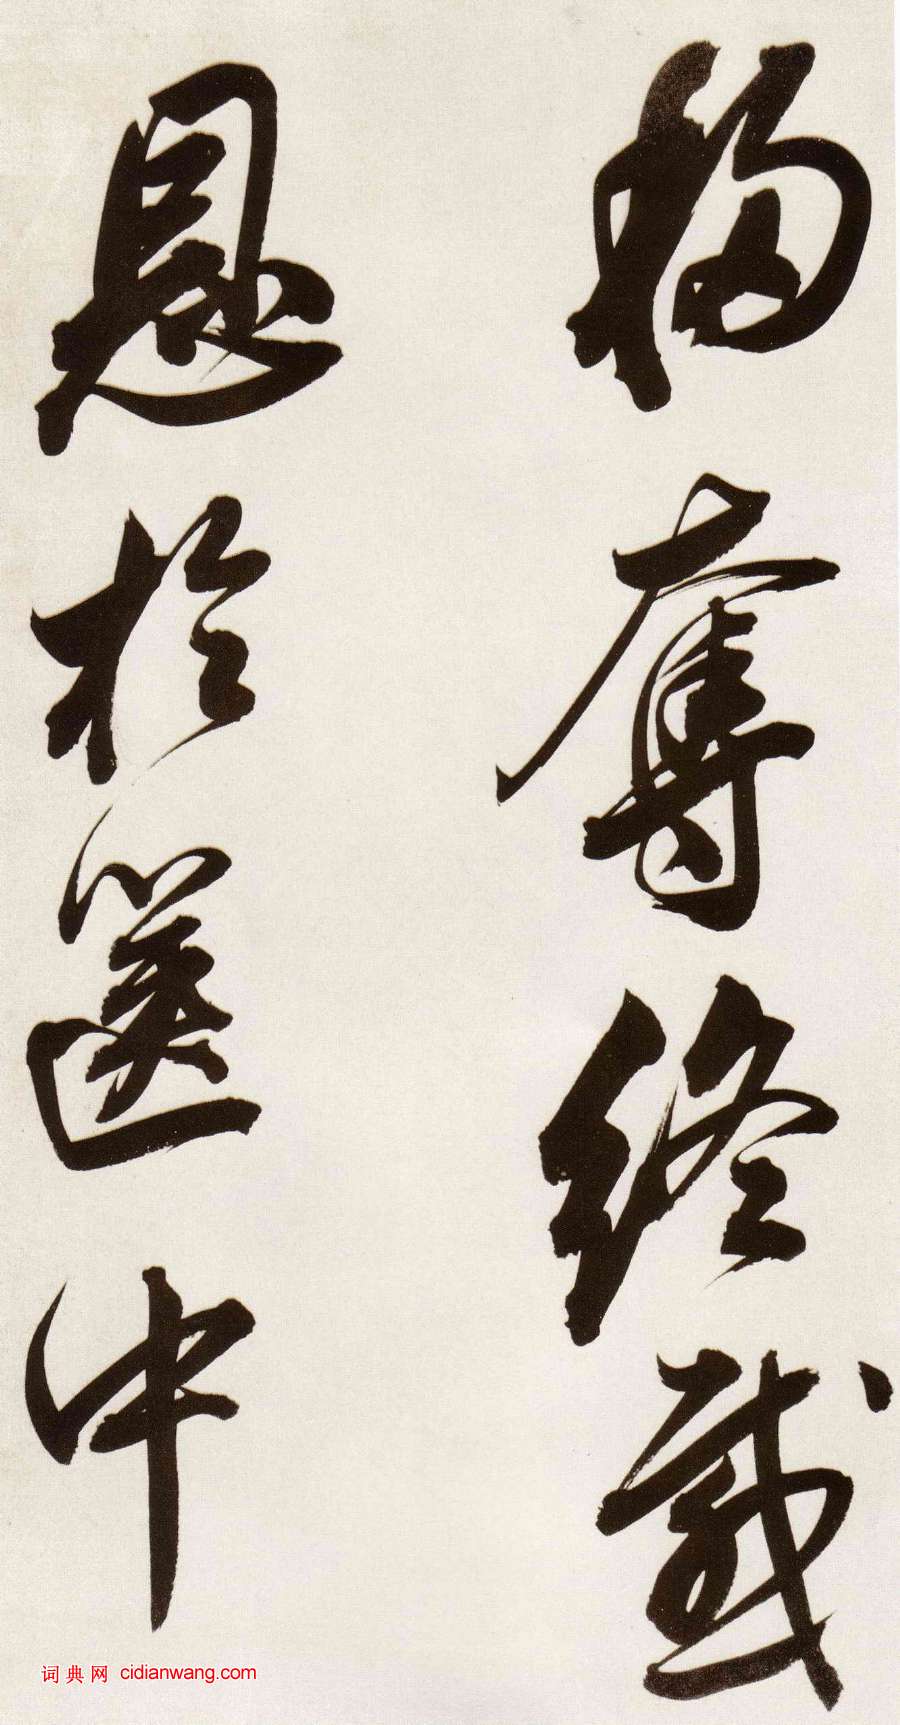 移奪終感
恩於篋中
词典网 cidianwang.com